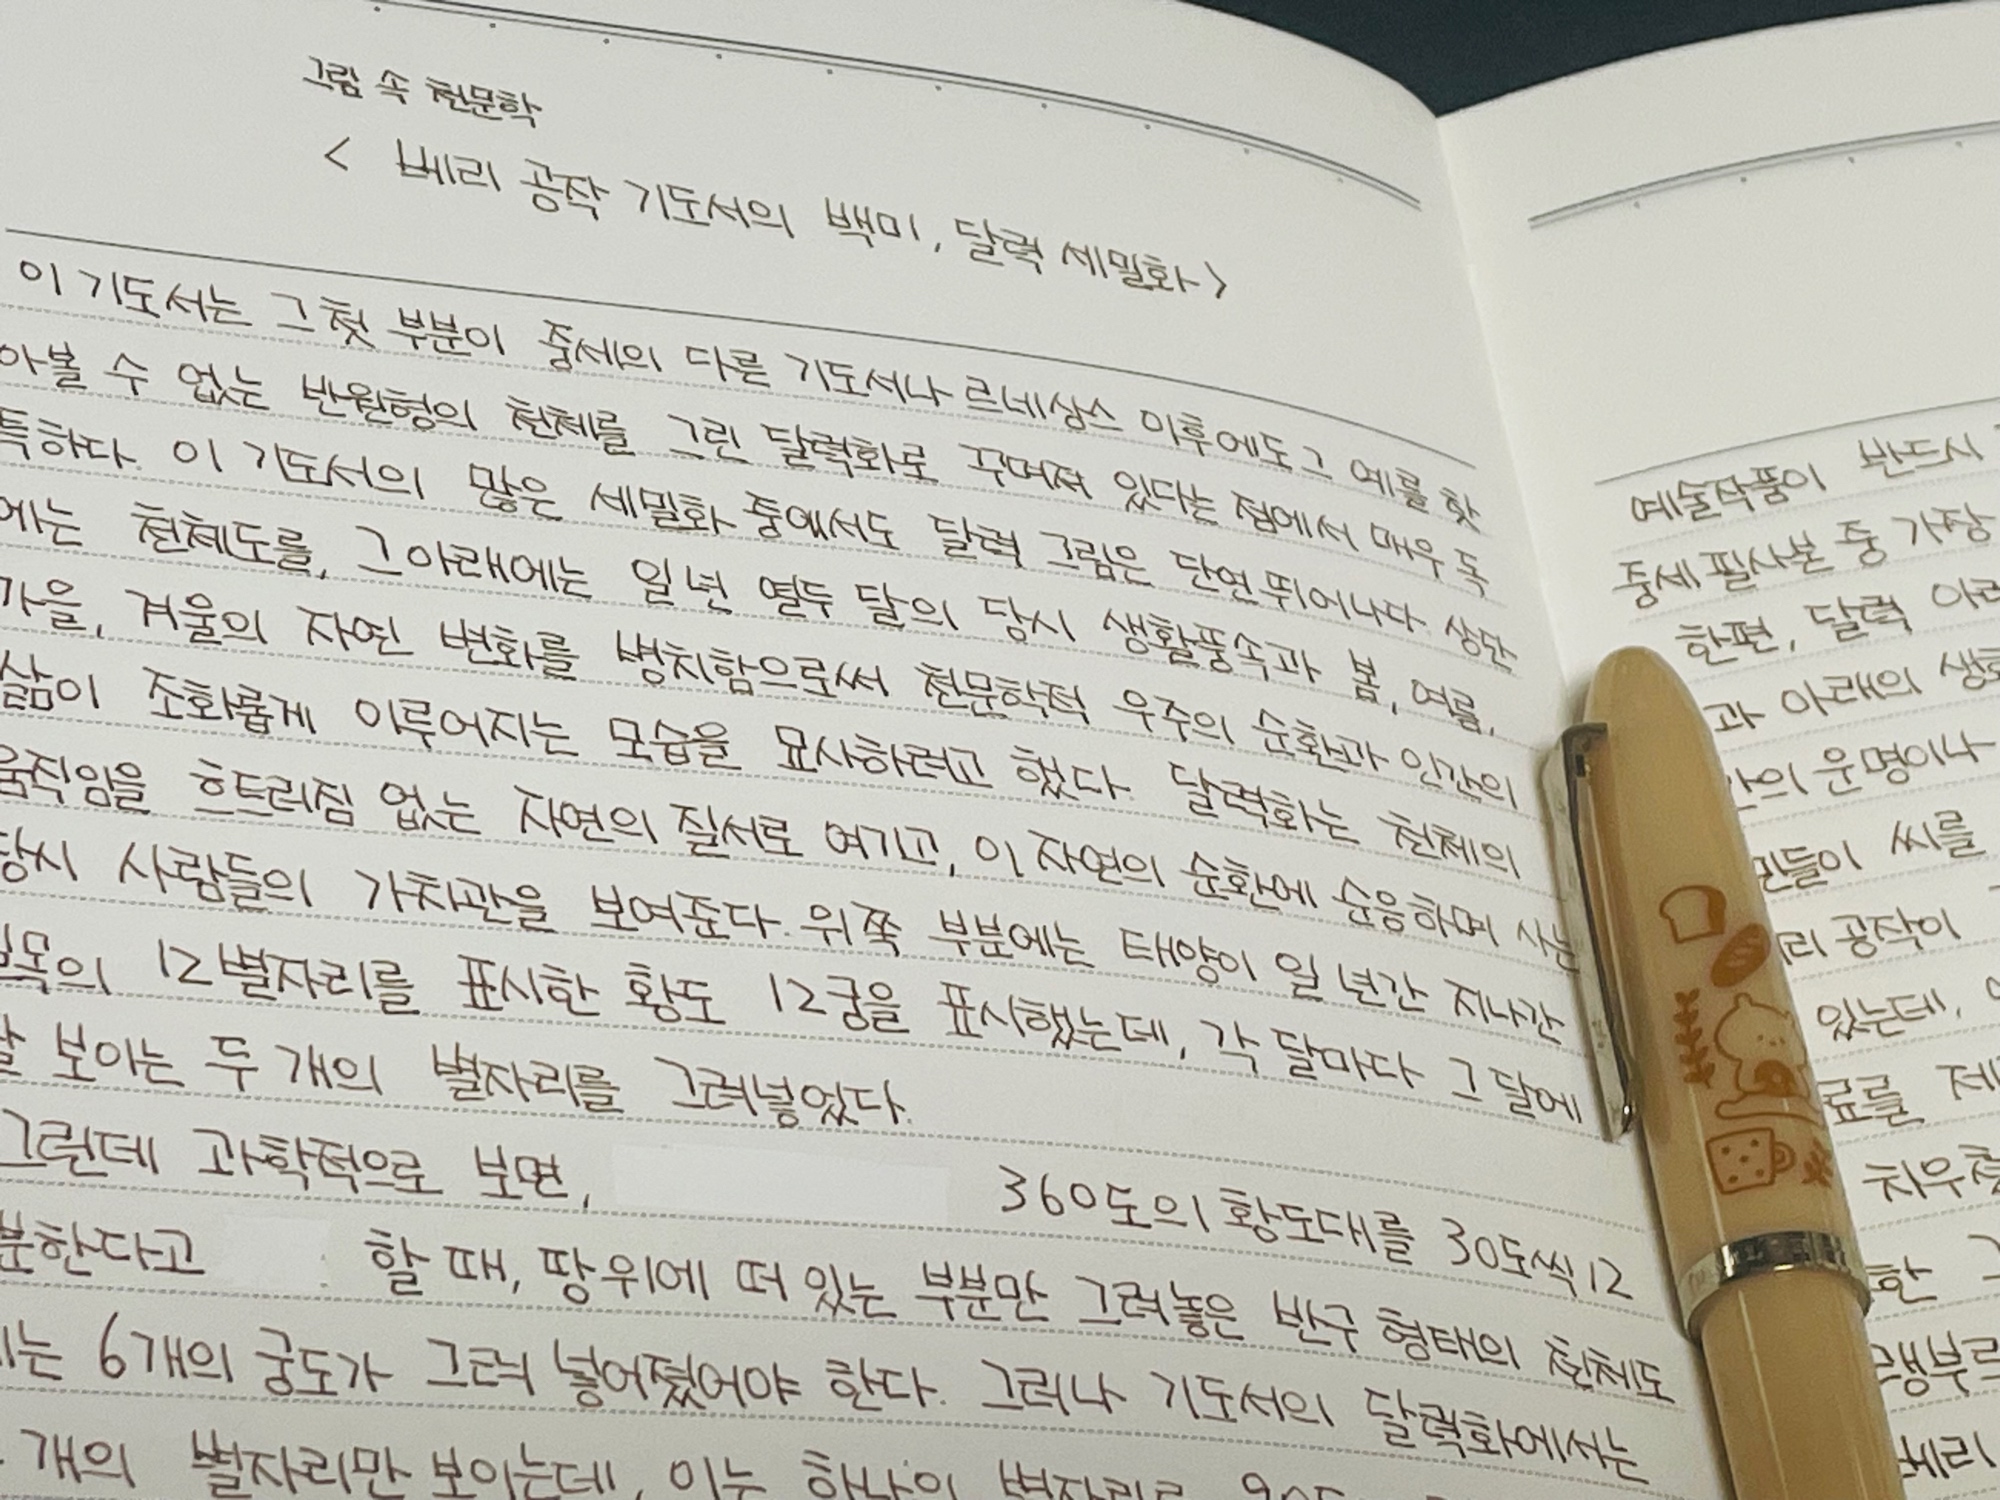 그림 속 천문학
< 베리 공작 기도서의 백미, 달력 세밀화>
이 기도서는 그 첫 부분이 중세의 다른 기도서나 르네상스 이후에도 그 예를 찾
아볼 수 없는 반원형의 천체를 그린 달력화로 꾸며져 있다는 점에서 매우 독
특하다. 이 기도서의 많은 세밀화 중에서도 달력 그림은 단연 뛰어나다. 상단
에는 천체도를, 그 아래에는 일 년 열두 달의 당시 생활풍속과 봄, 여름,
가을, 겨울의 자연 변화를 병치함으로써 천문학적 우주의 순환과 인간의
삶이 조화롭게 이루어지는 모습을 묘사하려고 했다. 달력화는 천체의
움직임을 흐트러짐 없는 자연의 질서로 여기고, 이 자연의 순환에 순응하며 사는
당시 사람들의 가치관을 보여준다. 위쪽 부분에는 태양이 일 년간 지나간
길목의 12별자리를 표시한 황도 12궁을 표시했는데, 각 달마다 그 달에
잘 보이는 두 개의 별자리를 그려넣었다.
그런데 과학적으로 보면, 360도의 황도대를 30도씩 12
분한다고 할 때, 땅 위에 떠 있는 부분만 그려놓은 반구 형태의 천체도
에는 6개의 궁도가 그려 넣어졌어야 한다. 그러나 기도서의 달력화에서는
개의 별자리만 보이는데, 이는 하나의 별자리로
예술작품이 반드시
중세 필사본 중 가장
한편, 달력
과 아래의
운명이나
민들이 씨를
리 공작이
있는데,
료를
한
랭부르
베리